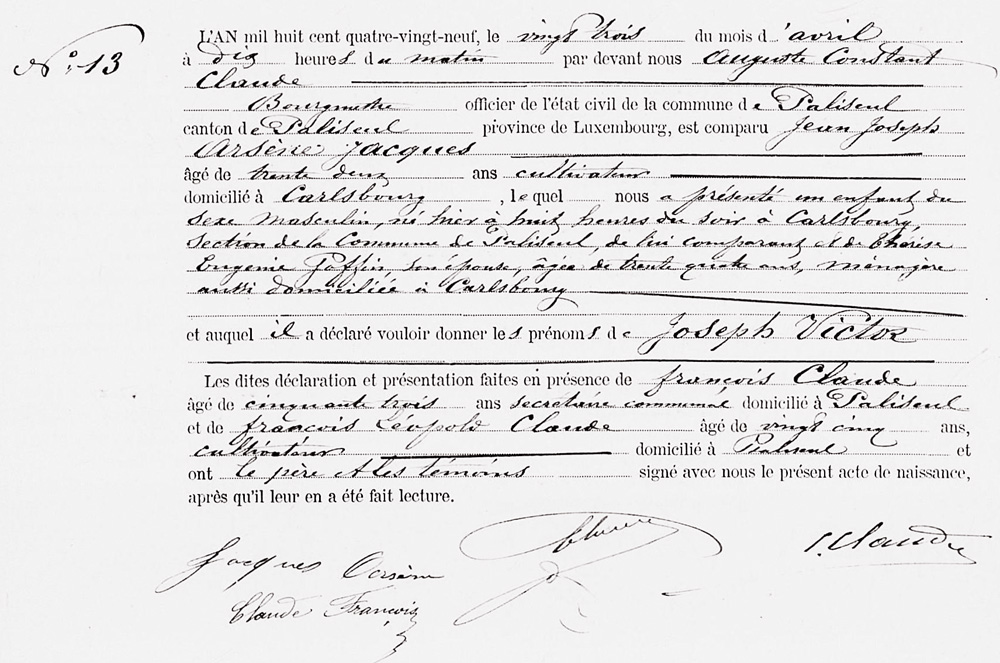 N° 13
L'AN mil huit cent quatre-vingt-neuf, le vingt trois du mois d'avril
à dix heures du matin par devant nous Auguste Constant
Claude
Bourgmestre officier de l'état civil de la commune de Paliseul
canton de Paliseul province de Luxembourg, est comparu Jean Joseph
Arsène Jacques
âgé de trente deux ans cultivateur
domicilié à Carlsbourg, lequel nous a présenté un enfant du
sexe masculin, né hier à huit heures du soir à Carlsbourg,
section de la Commune de Paliseul, de lui comparant et de Thérèse
Eugenie Poffin, son épouse, âgée de trente quatre ans, ménagère
aussi domiciliée à Carlsbourg
et auquel il a déclaré vouloir donner les prénoms de Joseph Victor
Les dites déclaration et présentation faites en présence de françois Claude
âgé de cinquante trois ans secrétaire communal domicilié à Paliseul
et de françois Léopold Claude âgé de vingt cinq ans,
cultivateur domicilié à Paliseul et
ont le père et les témoins signé avec nous le présent acte de naissance,
après qu'il leur en a été fait lecture.
Claude
Jacques Arsène
Claude François